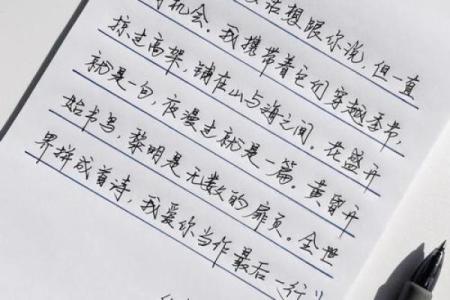 话想跟你说,但一直
机会。我携带着它们穿越季节,
掠过高架,铺在山与海之间。花盛开
就是一句,夜漫过就是一篇。黄昏开
始书写,黎明是无数的扉页。全世
界拼成首诗,我爱你当作最后一行